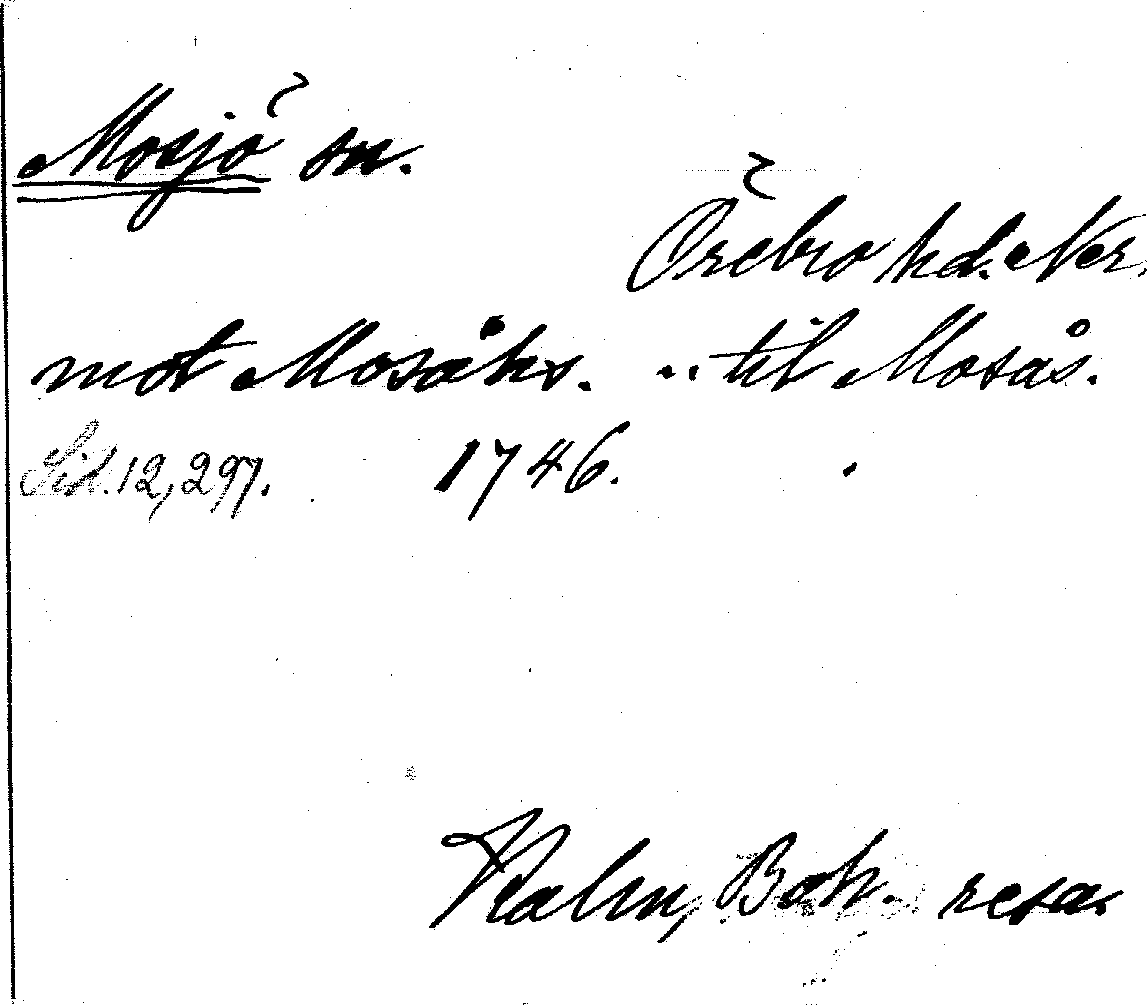 Mosjö sn.
Örebro hd. Ner.
mot Mosåhs. .. til Mosås.
Sid. 12, 297. 1746.
Kalm, Boh. resa.